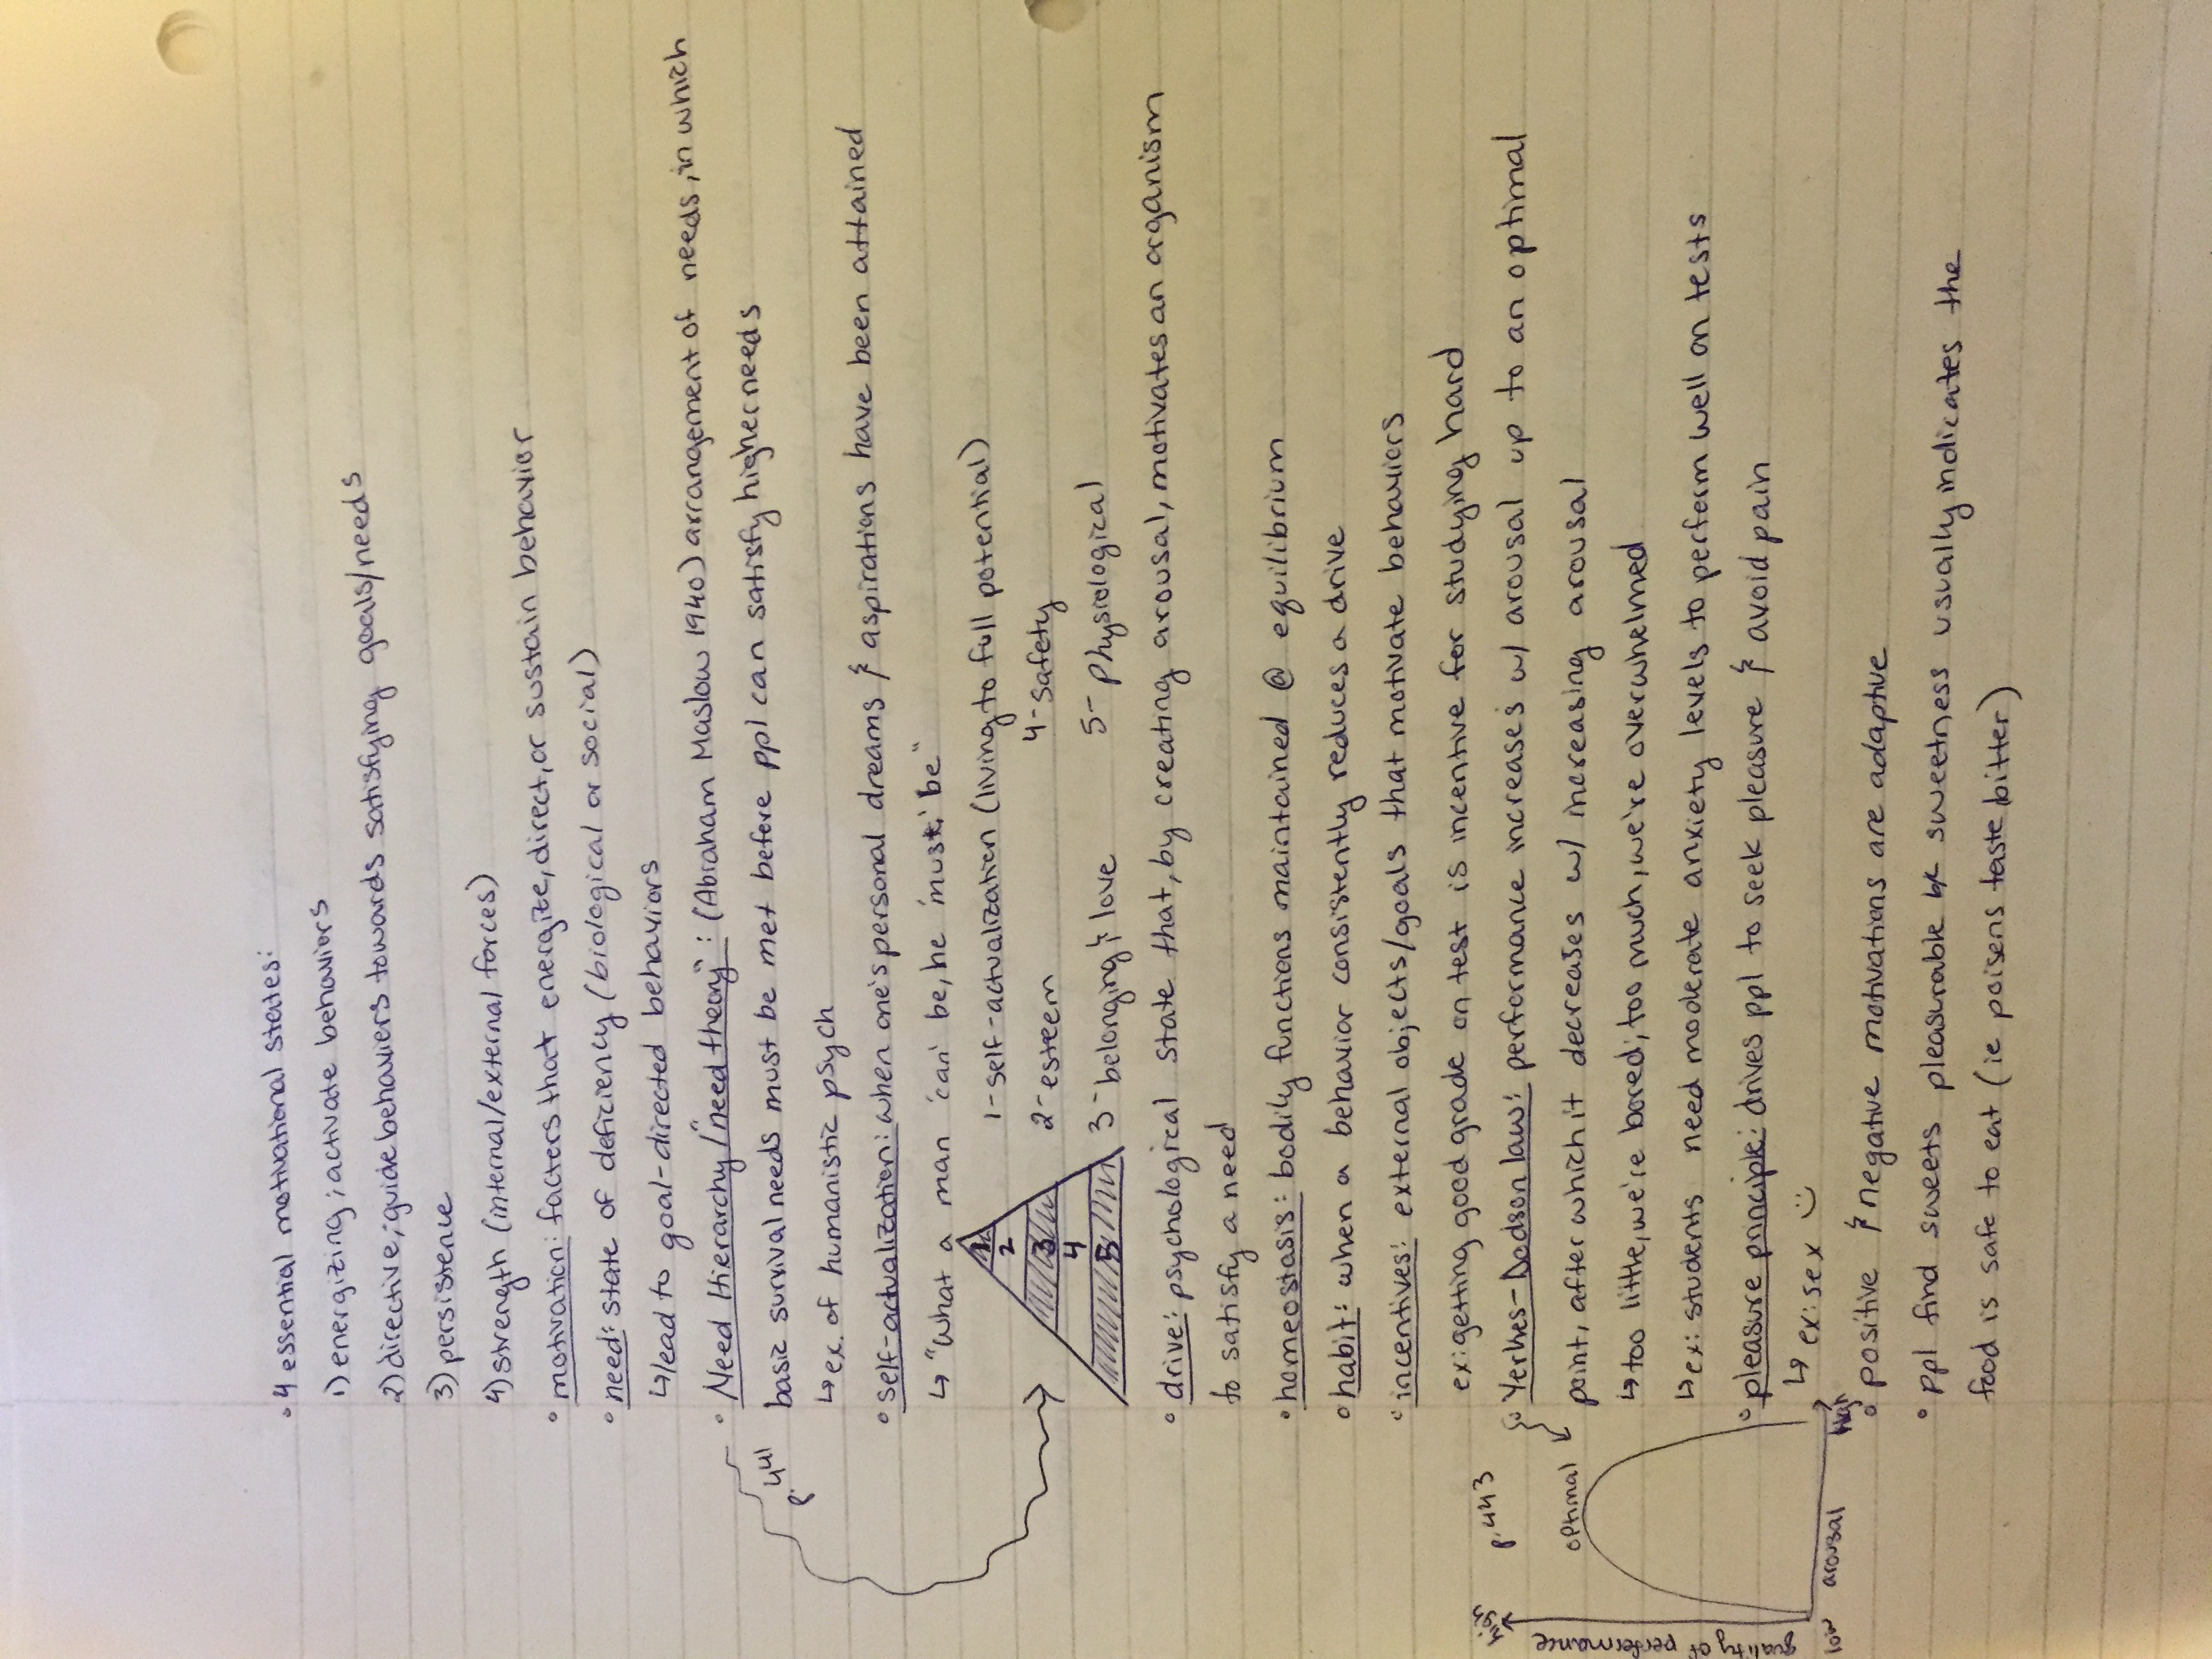 • 4 essential motivational states:
1) energizing; activate behaviors
2) directive; guide behaviors towards satisfying goals/needs
3) persistence
4) strength (internal/external forces)
• motivation: factors that energize, direct, or sustain behavior
• need: state of deficiency (biological or social)
↳ lead to goal-directed behaviors
• Need Hierarchy/"need theory": (Abraham Maslow 1940) arrangement of needs, in which
p. 441
basic survival needs must be met before ppl can satisfy higher needs
↳ ex. of humanistic psych
• self-actualization: when one's personal dreams & aspirations have been attained
↳ "What a man 'can' be, he 'must' be"
1
2
3
4
5
1- self-actualization (living to full potential)
2- esteem
3- belonging & love
4- safety
5- physiological
• drive: psychological state that, by creating arousal, motivates an organism
to satisfy a need
• homeostasis: bodily functions maintained @ equilibrium
• habit: when a behavior consistently reduces a drive
• incentives: external objects/goals that motivate behaviors
ex: getting good grade on test is incentive for studying hard
p. 443
• Yerkes-Dodson law: performance increases w/ arousal up to an optimal
point, after which it decreases w/ increasing arousal
↳ too little, we're bored; too much, we're overwhelmed
↳ ex: students need moderate anxiety levels to perform well on tests
high
quality of performance
optimal
low
arousal
high
• pleasure principle: drives ppl to seek pleasure & avoid pain
↳ ex: sex :)
• positive & negative motivations are adaptive
• ppl find sweets pleasurable bc sweetness usually indicates the
food is safe to eat (ie poisons taste bitter)